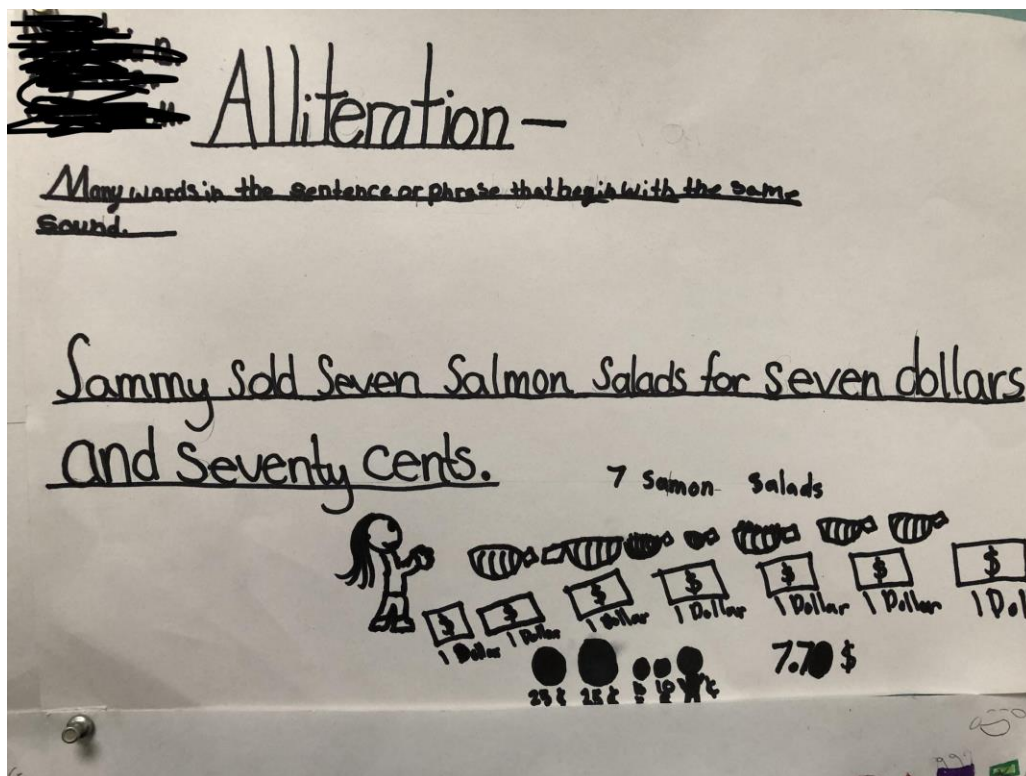 Alliteration-
Many words in the sentence or phrase that begin with the same
sound.
Sammy sold Seven Salmon Salads for seven dollars
and seventy cents.
7 Samon Salads
$ $ $ $ $ $ $
1 Dollar 1 Dollar 1 Dollar 1 Dollar 1 Dollar 1 Dollar 1 Dol
7.70 $
25¢ 25¢